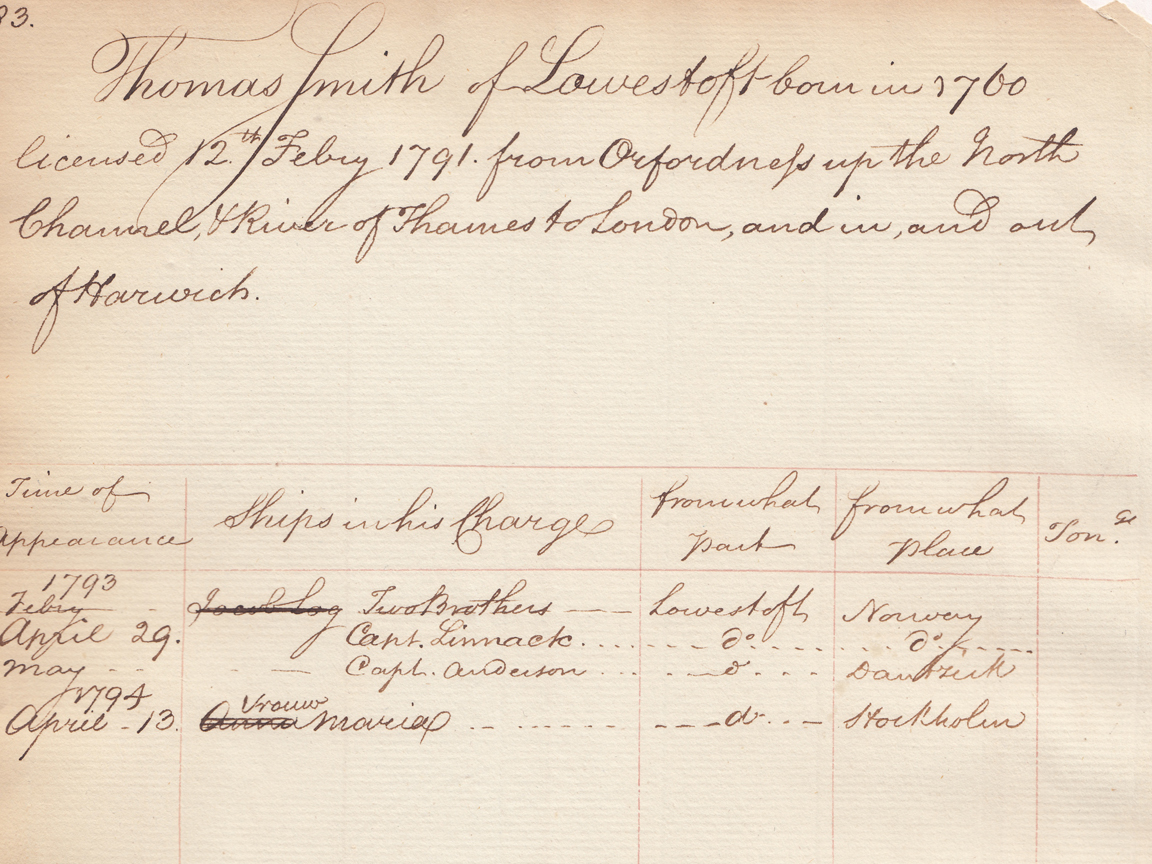 83.
Thomas Smith of Lowestoft born in 1760
licensed 12.th Febry 1791. from Orfordness up the North
Channel, & River of Thames to London, and in, and out
of Harwich.
Time of Appearance Ships in his Charge from what Part from what Place Ton.ge
1793
Febry - Jacob Log Two Brothers — Lowestoft Norway
April 29. Capt. Linnack. . . . . . . . do . . . . . . . . do . . . . .
May - - — Capt. Anderson . . . . - d . . . . Dantzick
1794
Vrouw
April - 13. Anna Maria . . . . . . . . - - - do . . - Stockholm